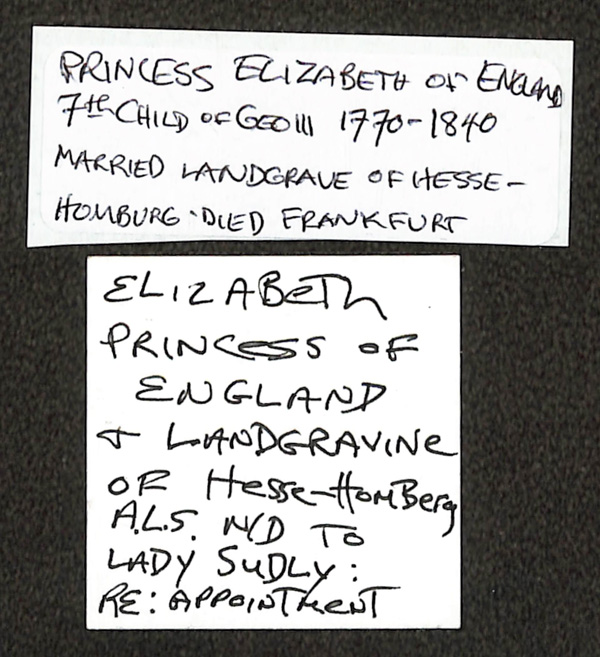 PRINCESS ELIZABETH OF ENGLAND
7th CHILD OF GEO III 1770-1840
MARRIED LANDGRAVE OF HESSE-
HOMBURG. DIED FRANKFURT
ELIZABETH
PRINCESS OF
ENGLAND
+ LANDGRAVINE
OF HESSE-HOMBERG
A.L.S. N/D TO
LADY SUDLY:
RE: APPOINTMENT